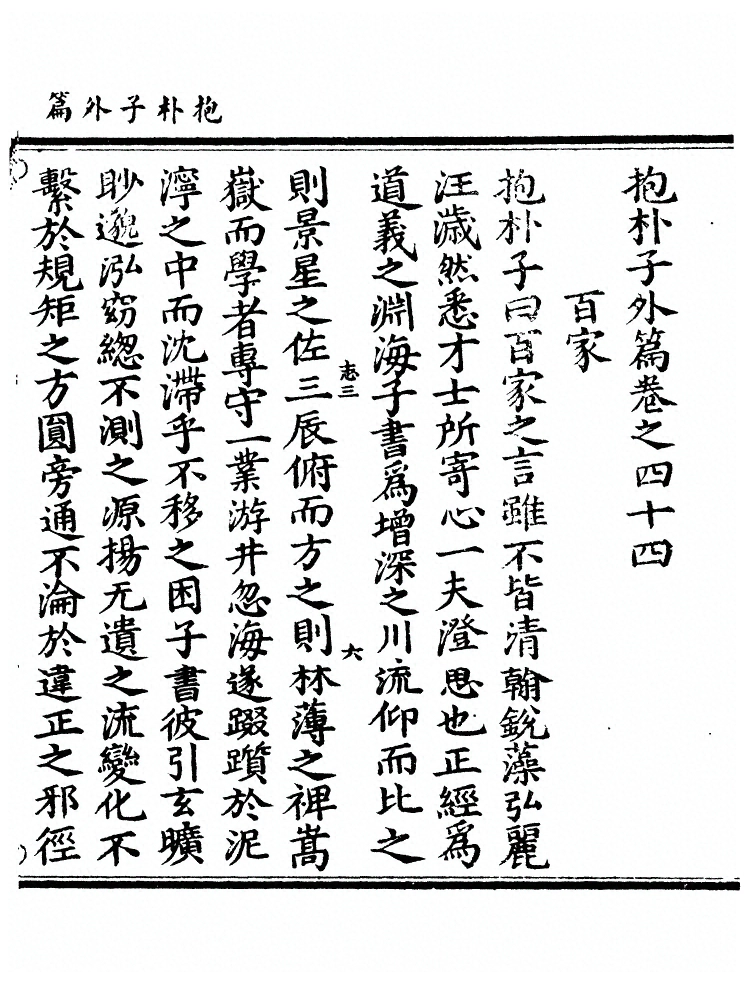 抱朴子外篇
抱朴子外篇卷之四十四
百家
抱朴子曰百家之言雖不皆清翰銳藻弘麗
汪濊然悉才士所寄心一夫澄思也正經爲
道義之淵海子書爲增深之川流仰而比之
則景星之佐三辰俯而方之則林薄之裨嵩
志三
六
嶽而學者專守一業游井忽海遂踬躓於泥
濘之中而沈滯乎不移之困子書彼引玄曠
眇邈泓窈緫不測之源揚无遺之流變化不
繫於規矩之方圓旁通不淪於違正之邪徑